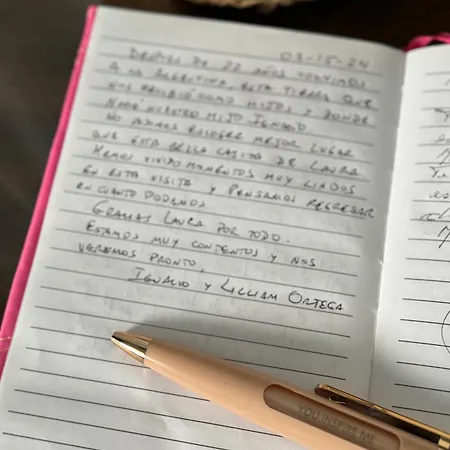 03-15-24
DESPUES DE 22 AÑOS VOLVIMOS
A LA ARGENTINA, ESTA TIERRA QUE
NOS RECIBIÓ COMO HIJOS Y DONDE
NACIÓ NUESTRO HIJO IGNACIO.
NO PUDIMOS ESCOGER MEJOR LUGAR
QUE ESTA BELLA CASITA DE LAURA
HEMOS VIVIDO MOMENTOS MUY LINDOS
EN ESTA VISITA Y PENSAMOS REGRESAR
EN CUANTO PODAMOS.
GRACIAS LAURA POR TODO.
ESTAMOS MUY CONTENTOS Y NOS
VEREMOS PRONTO,
IGNACIO Y LILLIAM ORTEGA
YOU INSPIRE ME